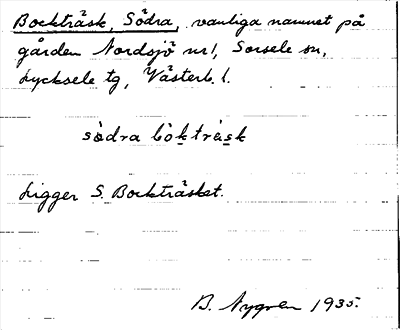 Bockträsk, Södra, vanliga namnet på
gården Nordsjö nr 1, Sorsele sn,
Lycksele tg, Västerb. l.
södra bòkträ̀sk
Ligger S. Bockträsket.
B. Nygren 1935.